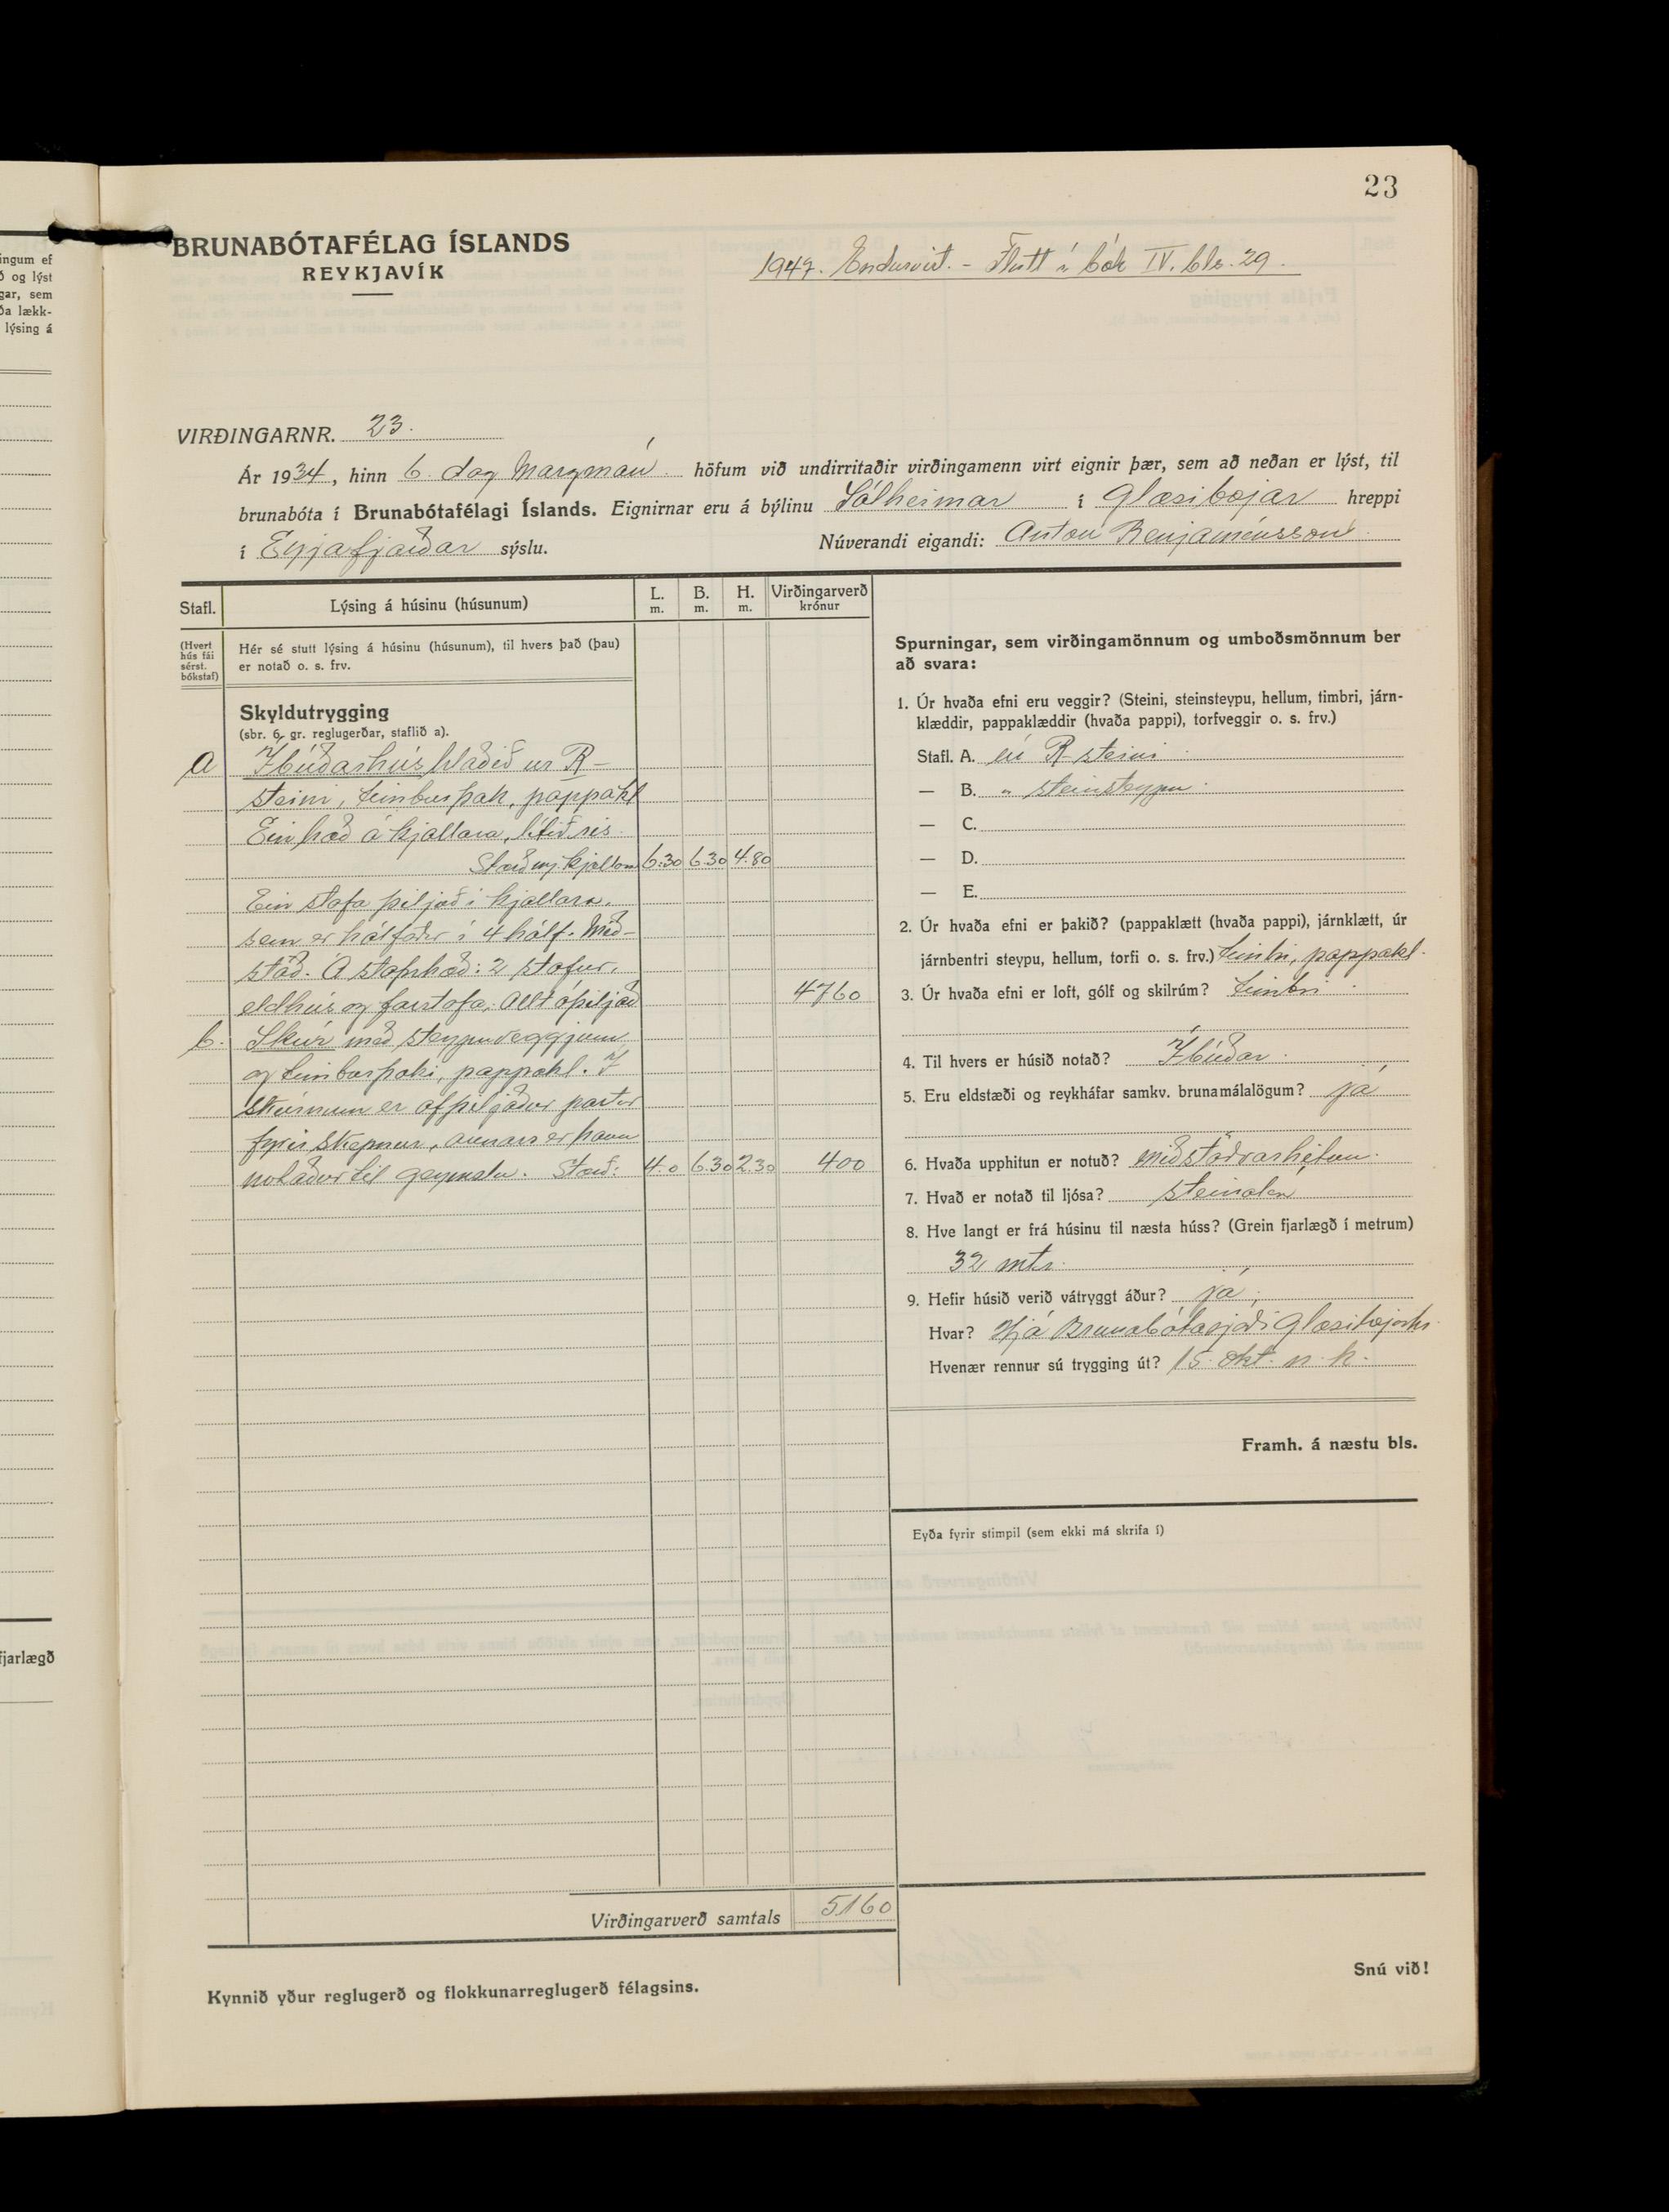 23
BRUNABÓTAFÉLAG ÍSLANDS
REYKJAVÍK
1947. Endurvirt. - Flutt í bók IV. bls. 29.
VIRÐINGARNR. 23.
Ár 1934, hinn 6. dag Marzmán. höfum við undirritaðir virðingamenn virt eignir þær, sem að neðan er lýst, til
brunabóta í Brunabótafélagi Íslands. Eignirnar eru á býlinu Sólheimar í Glæsibæjar hreppi
í Eyjafjarðar sýslu. Núverandi eigandi: Anton Benjamínsson.
Stafl. Lýsing á húsinu (húsunum) L. m. B. m. H. m. Virðingarverð krónur
(Hvert hús fái sérst. bókstaf)
Hér sé stutt lýsing á húsinu (húsunum), til hvers það (þau)
er notað o. s. frv.
Skyldutrygging
(sbr. 6. gr. reglugerðar, staflið a).
a Íbúðarhús hlaðið úr R-
steini, timburþak, pappakl
Ein hæð á kjallara, lítið ris.
Stærð m/ kjallara 6.30 6.30 4.80
Ein stofa þiljuð í kjallara,
sem er hólfaður í 4 hólf. Mið-
stöð. Á stofuhæð: 2 stofur,
eldhús og forstofa. Allt óþiljað 4760
b. Skúr með steypuveggjum
og timburþaki, pappakl. Í
skúrnum er afþiljaður partur
fyrir skepnur, annars er hann
notaður til geymslu. Stærð: 4.0 6.30 2.30 400
Virðingarverð samtals 5160
Kynnið yður reglugerð og flokkunarreglugerð félagsins.
Spurningar, sem virðingamönnum og umboðsmönnum ber
að svara:
1. Úr hvaða efni eru veggir? (Steini, steinsteypu, hellum, timbri, járn-
klæddir, pappaklæddir (hvaða pappi), torfveggir o. s. frv.)
Stafl. A. úr R-steini.
— B. " steinsteypu.
— C.
— D.
— E.
2. Úr hvaða efni er þakið? (pappaklætt (hvaða pappi), járnklætt, úr
járnbentri steypu, hellum, torfi o. s. frv.) timbri, pappakl.
3. Úr hvaða efni er loft, gólf og skilrúm? timbri
4. Til hvers er húsið notað? Íbúðar.
5. Eru eldstæði og reykháfar samkv. brunamálalögum? já
6. Hvaða upphitun er notuð? miðstöðvarhitun.
7. Hvað er notað til ljósa? steinolía
8. Hve langt er frá húsinu til næsta húss? (Grein fjarlægð í metrum)
32 mtr.
9. Hefir húsið verið vátryggt áður? já,
Hvar? Hjá Brunabótasjóði Glæsibæjarhr.
Hvenær rennur sú trygging út? 15. okt. n. k.
Framh. á næstu bls.
Eyða fyrir stimpil (sem ekki má skrifa í)
Snú við!
ingum ef
ð og lýst
gar, sem
ða lækk-
lýsing á
fjarlægð